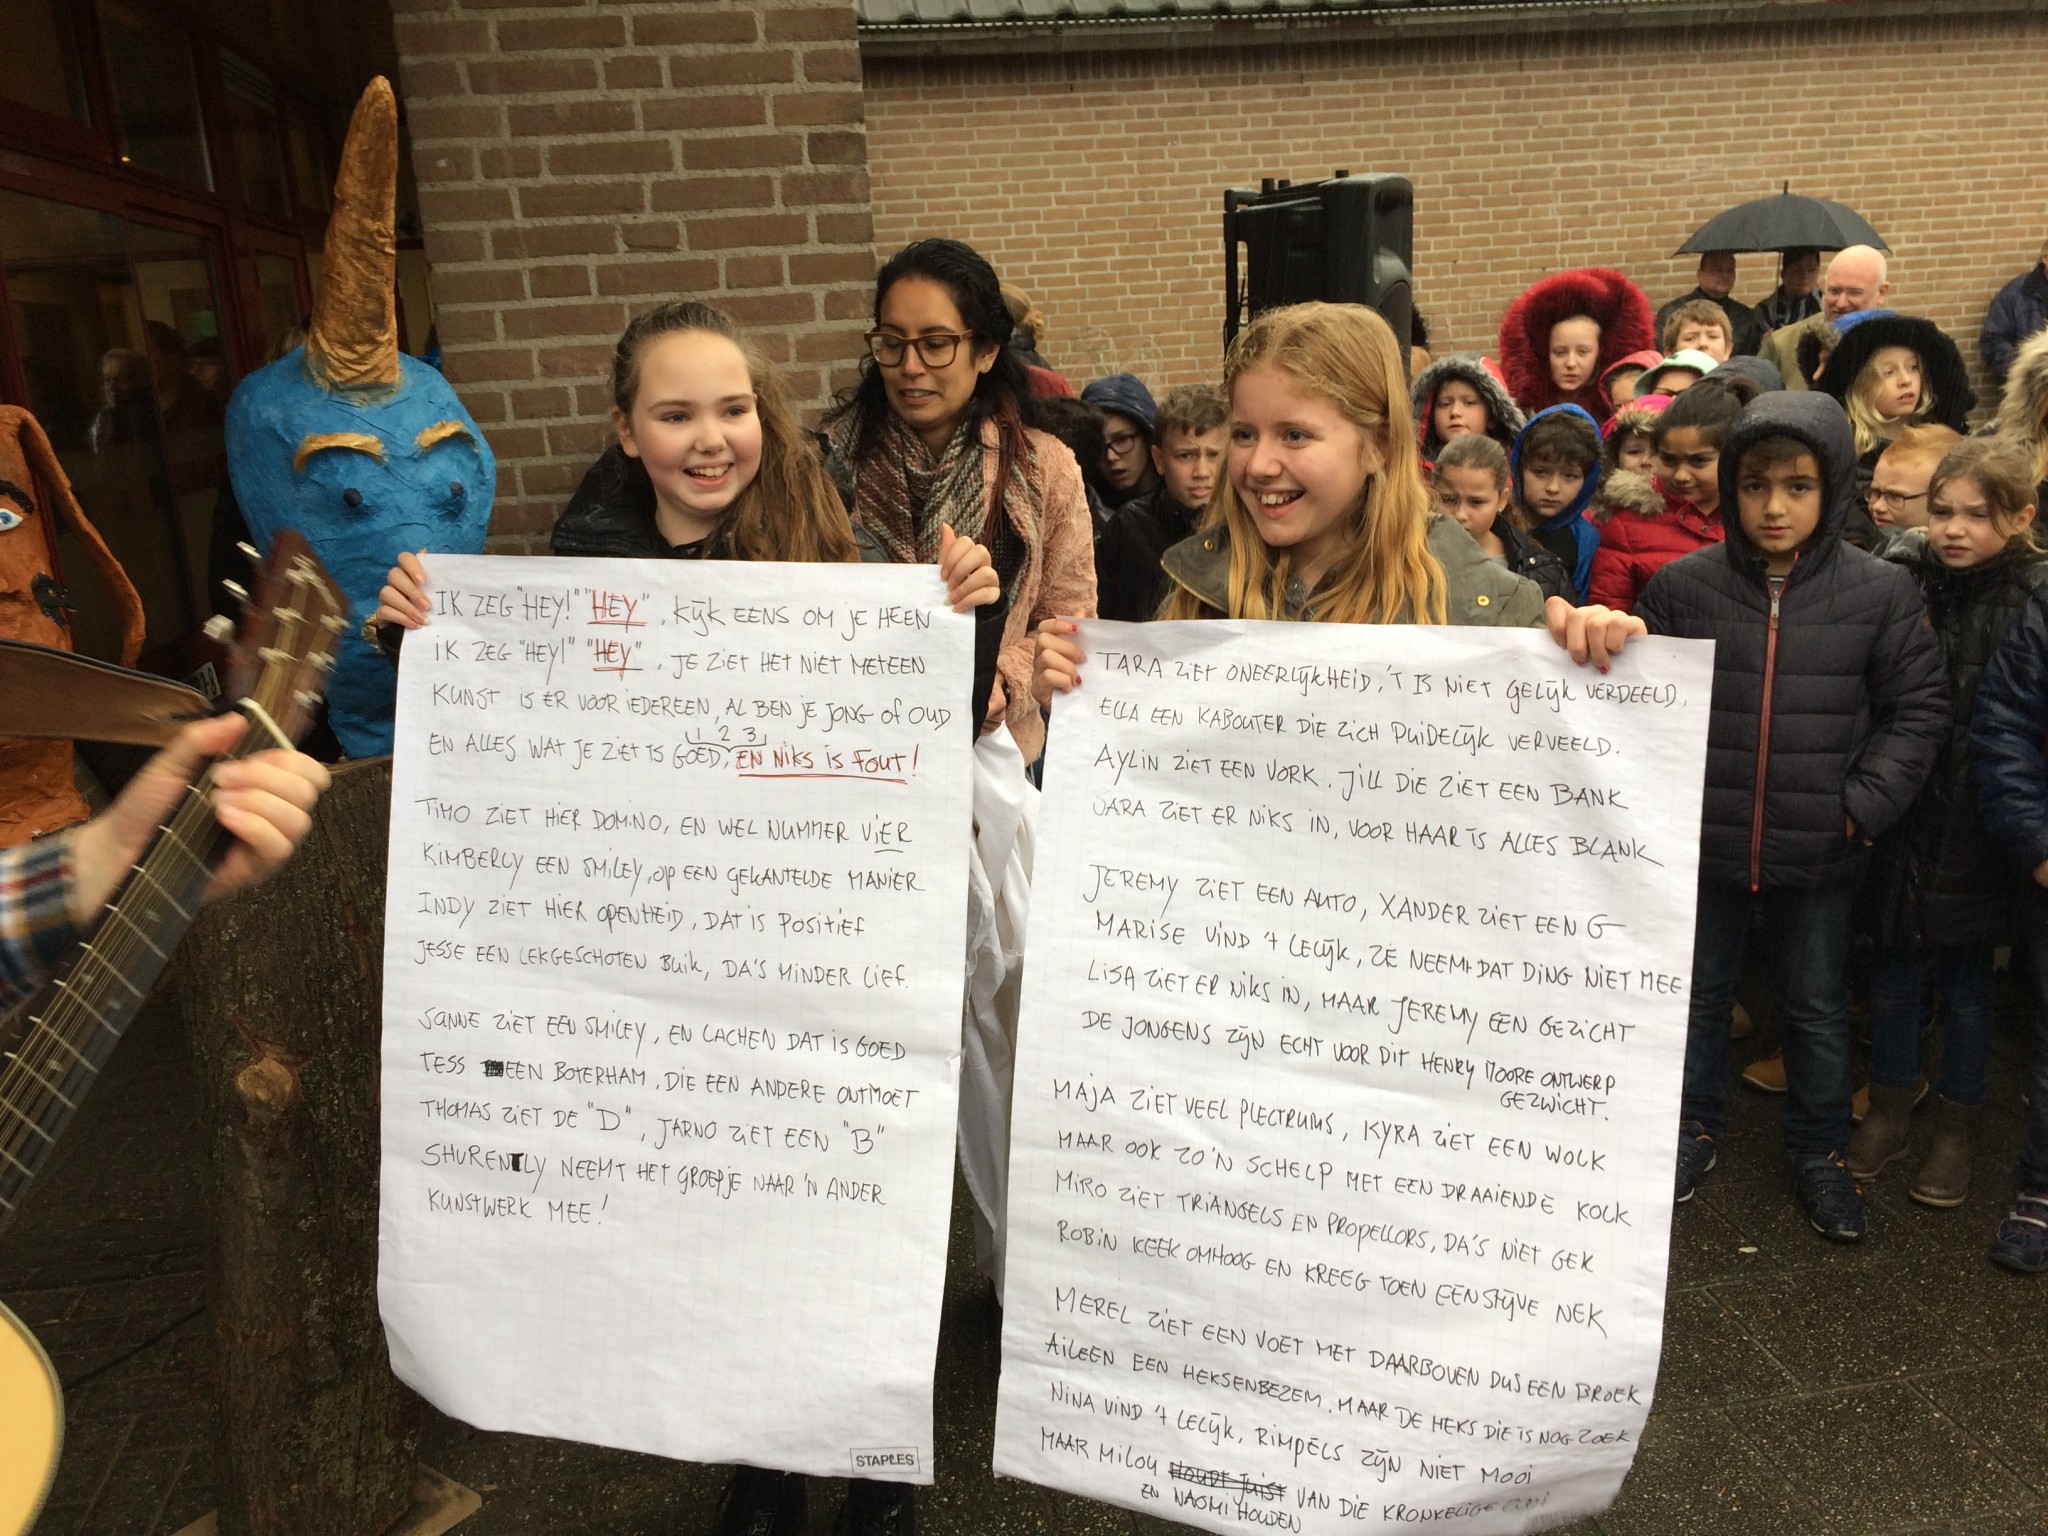 IK ZEG "HEY!" "HEY", KIJK EENS OM JE HEEN
IK ZEG "HEY!" "HEY", JE ZIET HET NIET METEEN
KUNST IS ER VOOR IEDEREEN, AL BEN JE JONG OF OUD
1 2 3
EN ALLES WAT JE ZIET IS GOED, EN NIKS IS FOUT!
TIMO ZIET HIER DOMINO, EN WEL NUMMER VIER
KIMBERLY EEN SMILEY, OP EEN GEKANTELDE MANIER
INDY ZIET HIER OPENHEID, DAT IS POSITIEF
JESSE EEN LEKGESCHOTEN BUIK, DA'S MINDER LIEF.
SANNE ZIET EEN SMILEY, EN LACHEN DAT IS GOED
TESS EEN BOTERHAM, DIE EEN ANDERE ONTMOET
THOMAS ZIET DE "D", JARNO ZIET EEN "B"
SHURENTLY NEEMT HET GROEPJE NAAR 'N ANDER
KUNSTWERK MEE!
STAPLES
TARA ZIET ONEERLIJKHEID, 'T IS NIET GELIJK VERDEELD,
ELLA EEN KABOUTER DIE ZICH DUIDELIJK VERVEELD.
AYLIN ZIET EEN VORK. JILL DIE ZIET EEN BANK
SARA ZIET ER NIKS IN, VOOR HAAR IS ALLES BLANK
JEREMY ZIET EEN AUTO, XANDER ZIET EEN G
MARISE VIND 'T LELIJK, ZE NEEMT DAT DING NIET MEE
LISA ZIET ER NIKS IN, MAAR JEREMY EEN GEZICHT
DE JONGENS ZIJN ECHT VOOR DIT HENRY MOORE ONTWERP
GEZWICHT.
MAJA ZIET VEEL PLECTRUMS, KYRA ZIET EEN WOLK
MAAR OOK ZO'N SCHELP MET EEN DRAAIENDE KOLK
MIRO ZIET TRIANGELS EN PROPELLORS, DA'S NIET GEK
ROBIN KEEK OMHOOG EN KREEG TOEN EEN STIJVE NEK
MEREL ZIET EEN VOET MET DAARBOVEN DUS EEN BROEK
AILEEN EEN HEKSENBEZEM. MAAR DE HEKS DIE IS NOG ZOEK
NINA VIND 'T LELIJK, RIMPELS ZIJN NIET MOOI
MAAR MILOU HOUDT JUIST VAN DIE KRONKELIGE
EN NAOMI HOUDEN